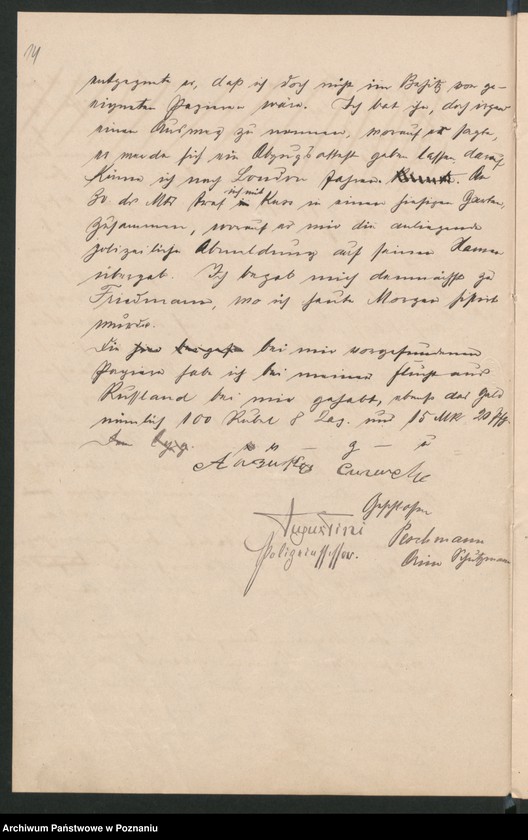 14
entgegnete er, daß ich doch nicht im Besitz von ge-
eigneten Papieren wäre. Ich bat ihn, doch irgend
einen Ausweg zu nennen, worauf er sagte,
er werde sich ein Abzugsattest geben lassen, darauf
könne ich nach London fahren. Am
30. ds. Mts traf ich mit Kass in einem hiesigen Garten
zusammen, worauf er mir die anliegende
polizeiliche Abmeldung auf seinen Namen
übergab. Ich begab mich demnächst zu
Friedmann, wo ich heute Morgen sistirt
wurde.
Die bei mir vorgefundenen
Papiere habe ich bei meiner Flucht aus
Russland bei mir gehabt, ebenso das Geld
nämlich 100 Rubel 8 und 15 Mk 20 Pfg.
v. g. u.
Geschlossen
Augustini
Polizeiassessor.
Rochmann
Crim Schutzmann
Archiwum Państwowe w Poznaniu